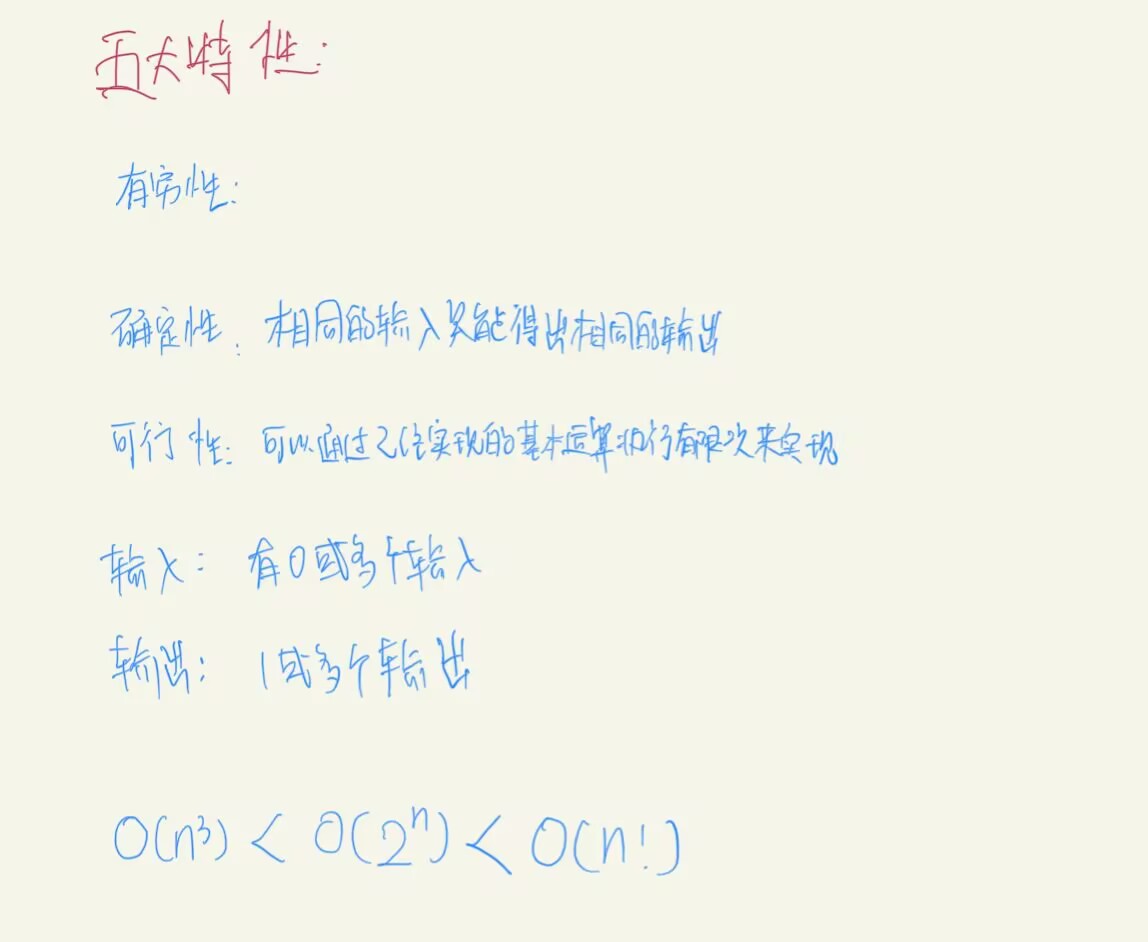 五大特性:
有穷性:
确定性: 相同的输入只能得出相同的输出
可行性: 可以通过已经实现的基本运算执行有限次来实现
输入: 有0或多个输入
输出: 1或多个输出
O(n³) < O(2ⁿ) < O(n!)